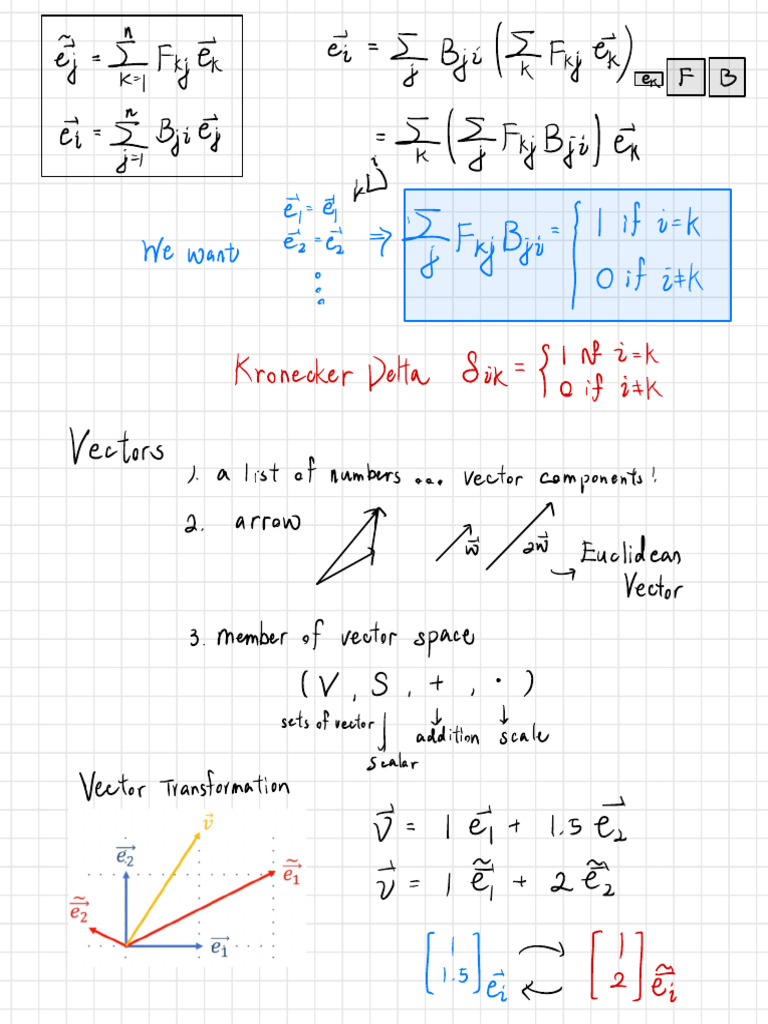 ẽ⃗_j = Σ_{k=1}^{n} F_{kj} e⃗_k
e⃗_i = Σ_{j=1}^{n} B_{ji} ẽ⃗_j
e⃗_i = Σ_j B_{ji} (Σ_k F_{kj} e⃗_k)
e_k F B
= Σ_k (Σ_j F_{kj} B_{ji}) e⃗_k
We want
e⃗_1 = e⃗_1
e⃗_2 = e⃗_2
⋮
⇒ Σ_j F_{kj} B_{ji} = { 1 if i=k
0 if i≠k
Kronecker Delta δ_{ik} = { 1 if i=k
0 if i≠k
Vectors
1. a list of numbers ... vector components!
2. arrow
w⃗ 2w⃗
→ Euclidean
Vector
3. member of vector space
(V, S, +, ·)
sets of vector
scalar
addition
scale
Vector Transformation
v⃗
e⃗_2
ẽ⃗_1
ẽ⃗_2
e⃗_1
v⃗ = 1 e⃗_1 + 1.5 e⃗_2
v⃗ = 1 ẽ⃗_1 + 2 ẽ⃗_2
[1 1.5]_{e⃗_i} [1 2]_{ẽ⃗_i}